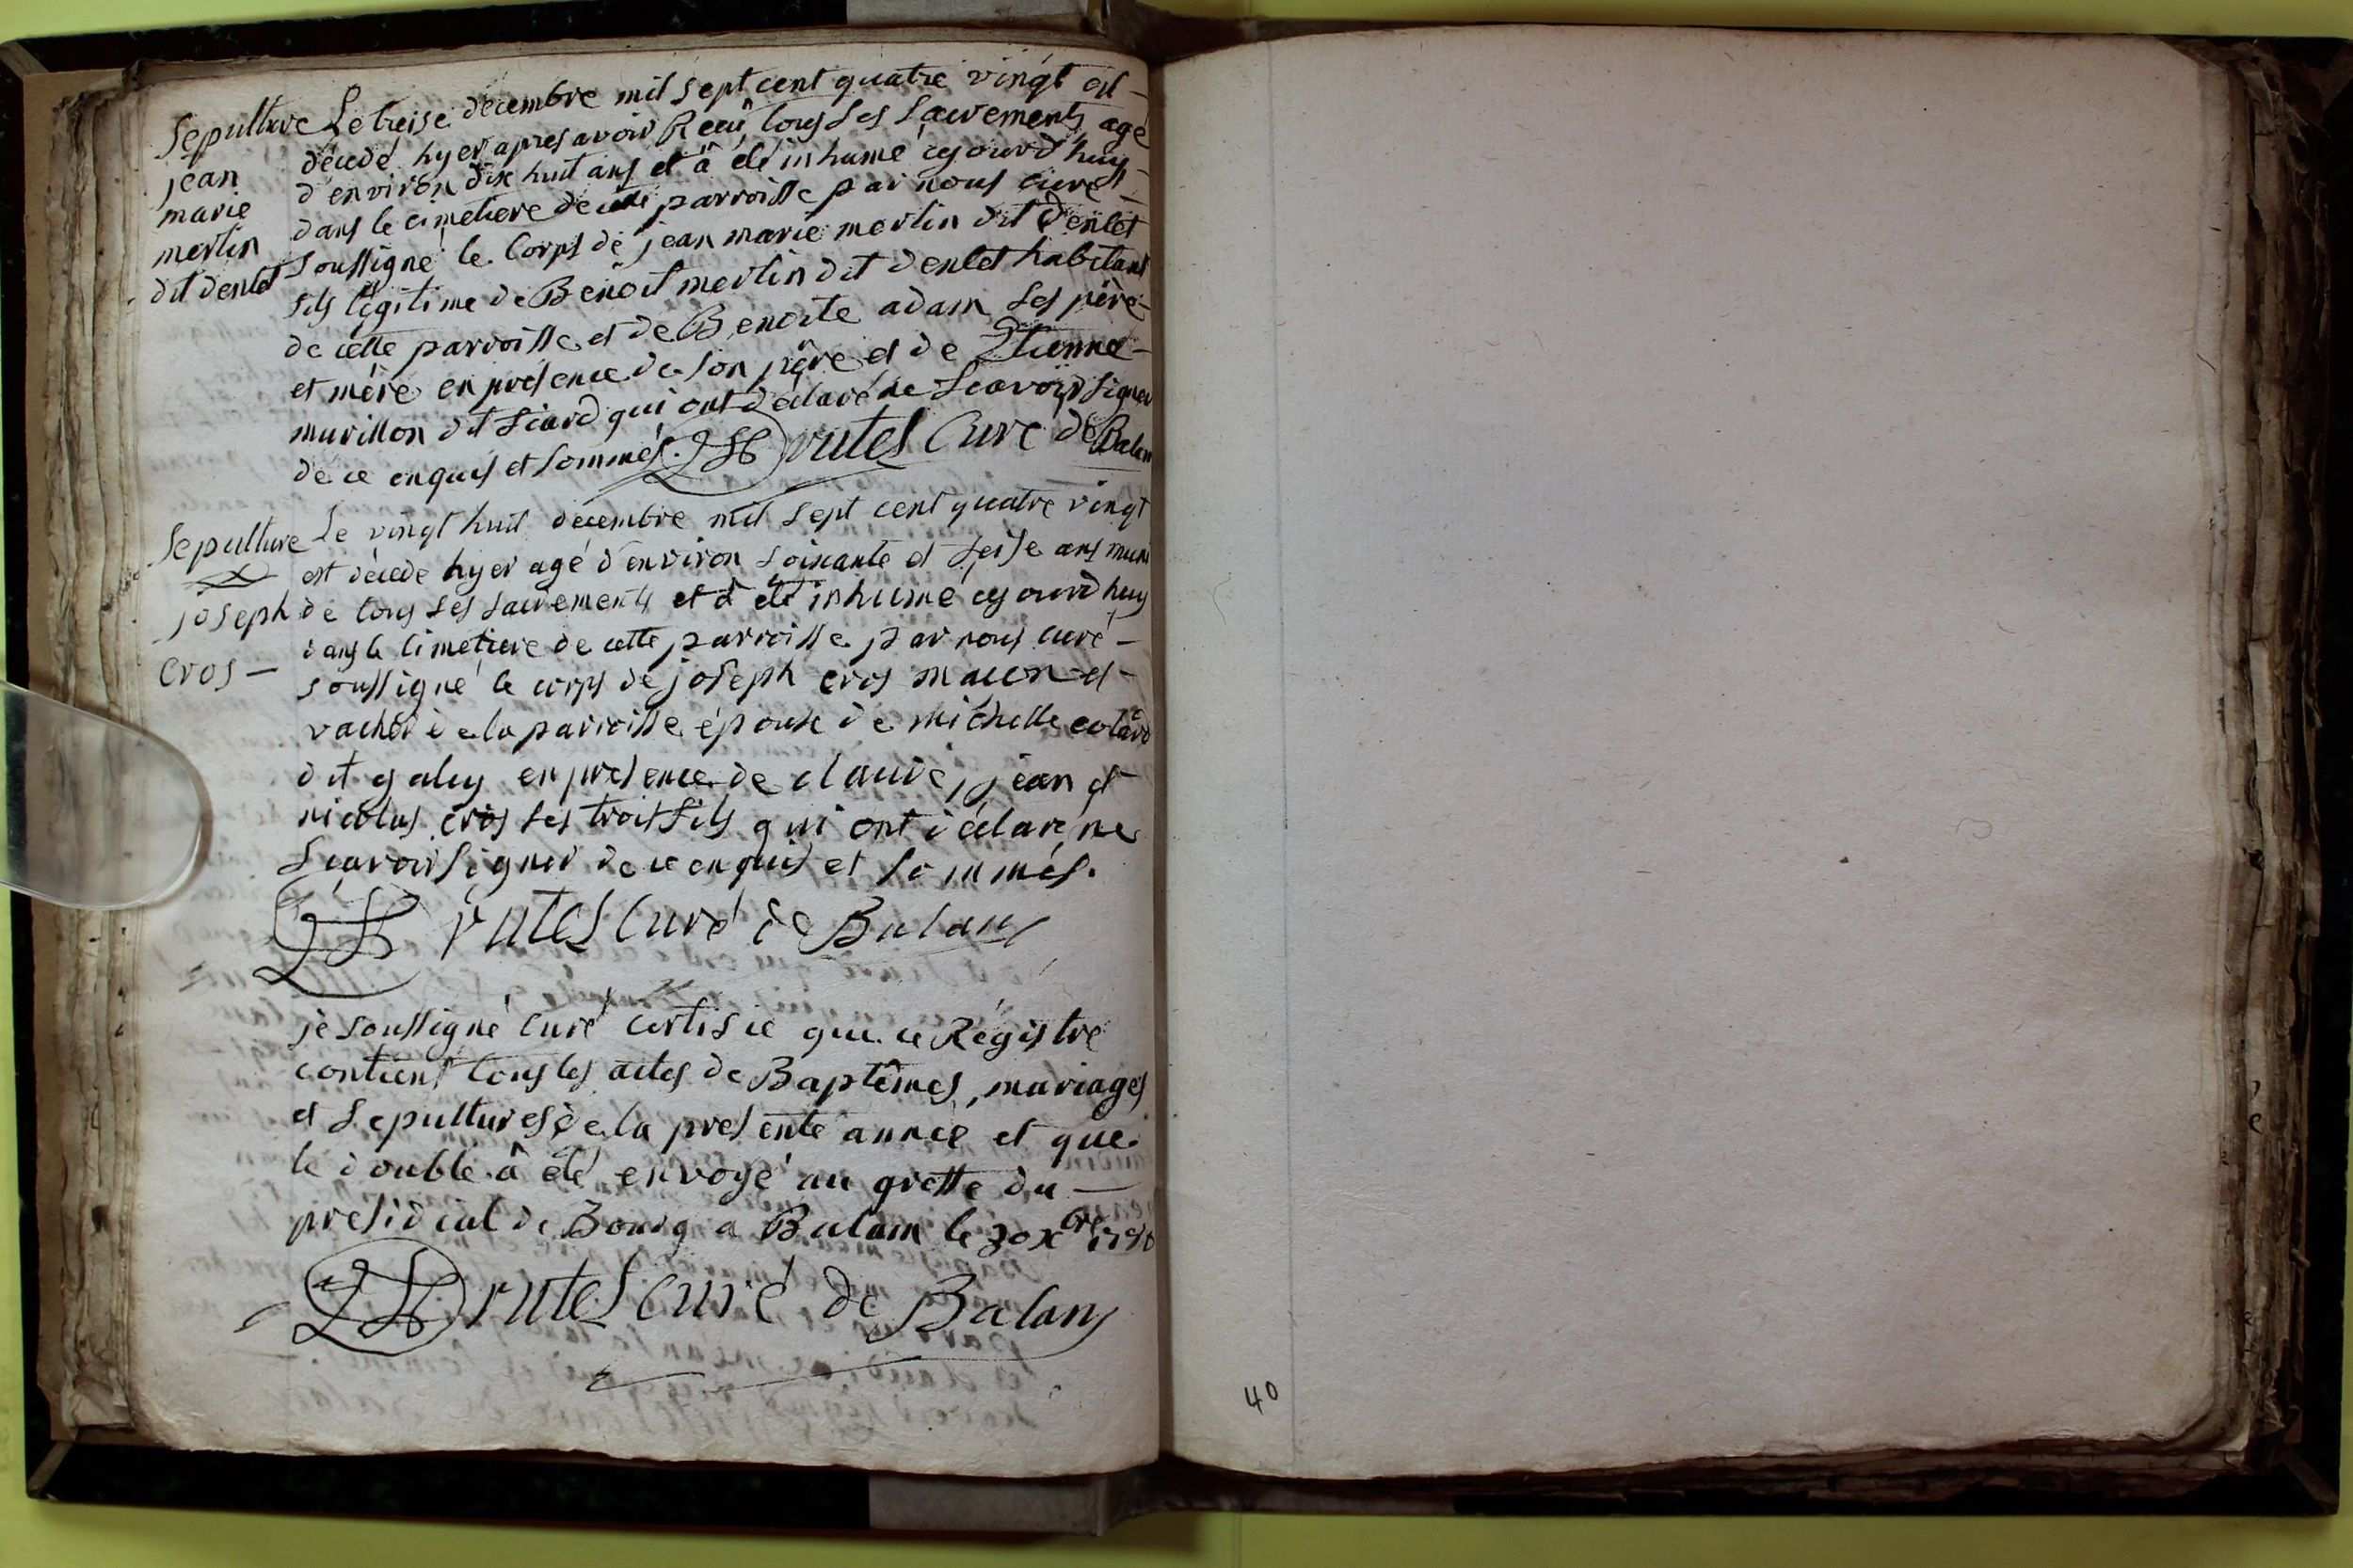 Sepulture Le treise decembre mil sept cent quatre vingt est
jean décedé hyer apres avoir Reçû tous ses sacrements agé
marie d'environ dix huit ans et à été inhumé cejourd'huy
merlin dans le cimetiere de cette parroisse par nous curé
dit denlet soussigné le corps de jean marie merlin dit denlet
fils légitime de Benoit merlin dit denlet habitant
de cette parroisse et de Benoite adam ses père
et mère en presence de son père et de Etienne
murillon dit siard qui ont déclaré ne scavoir signer
de ce enquis et sommés. Drutel Curé de Balan
Sepulture Le vingt huit decembre mil sept cent quatre vingt
est décedé hyer agé d'environ soixante et seise ans muni
joseph de tous ses sacrements et à été inhumé cejourd'huy
dans le cimetiere de cette parroisse par nous curé
cros soussigné le corps de joseph cros macon et
vacher de la parroisse époux de michelle colard
dit galey en presence de claude, jean et
nicolas cros ses trois fils qui ont déclaré ne
scavoir signer de ce enquis et sommés.
Drutel Curé de Balan
je soussigné curé certifie que ce Régistre
contient tous les actes de Baptêmes, mariages
et sepultures de la presente année et que
le double à été envoyé au greffe du
presidial de Bourg a Balan le 30 xbre 1780
Drutel curé de Balan
40